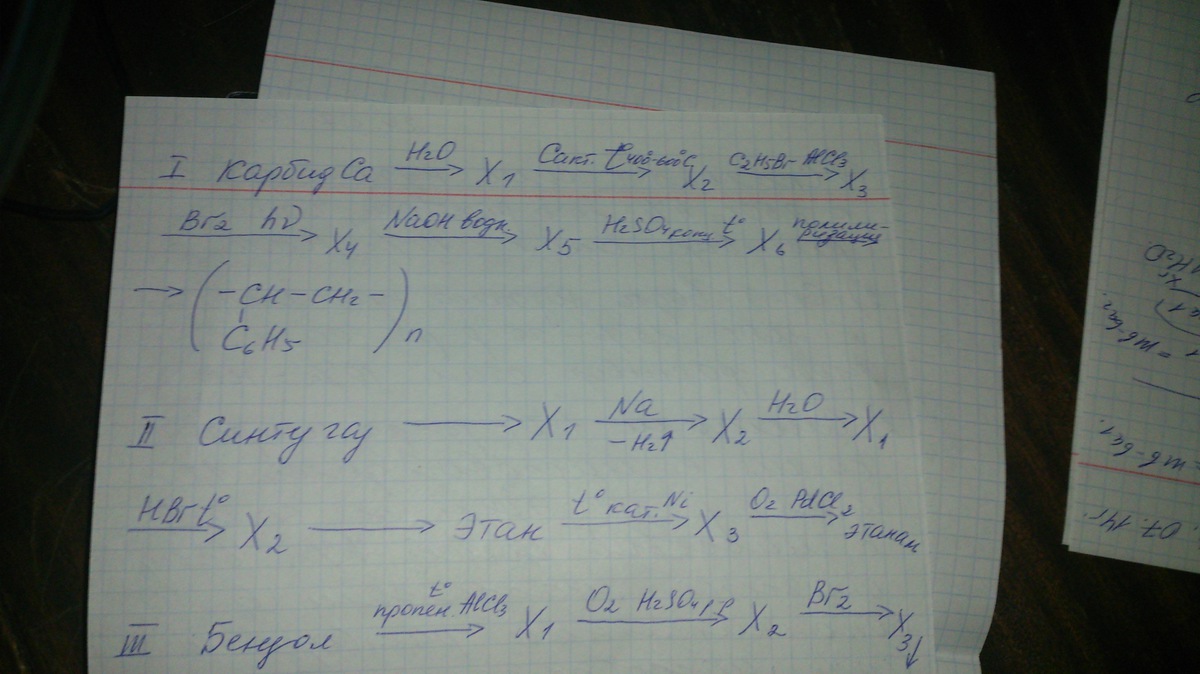 I Карбид Ca —H2O→ X1 —Cакт. t°400-600°C→ X2 —C2H5Br AlCl3→ X3
—Br2 hν→ X4 —NaOH водн.→ X5 —H2SO4 конц t°→ X6 —полиме-ризация→
→ (-CH-CH2-)n
C6H5
II Синтез газ → X1 —Na -H2↑→ X2 —H2O→ X1
—HBr t°→ X2 → Этан —t° кат. Ni→ X3 —O2 PdCl2→ этанал
III Бензол —пропен t° AlCl3→ X1 —O2 H2SO4 р-р→ X2 —Br2→ X3↓
07.14г.